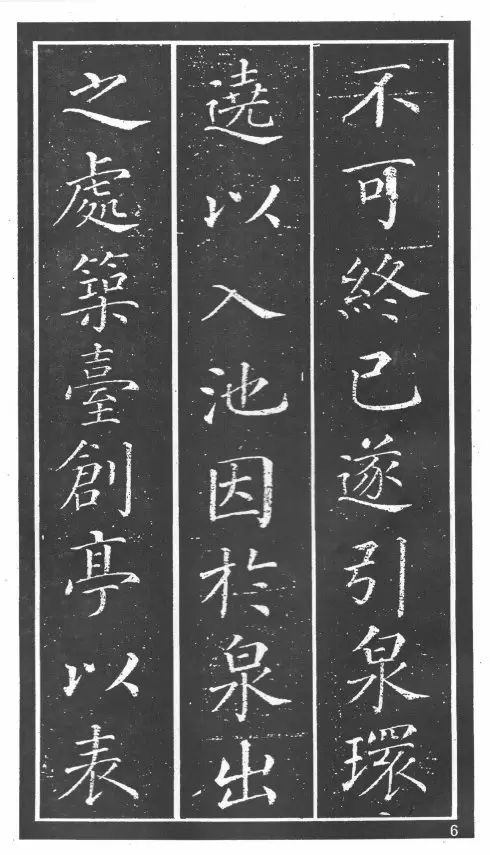 不可終已遂引泉環
遶以入池因於泉出
之處築臺創亭以表
6